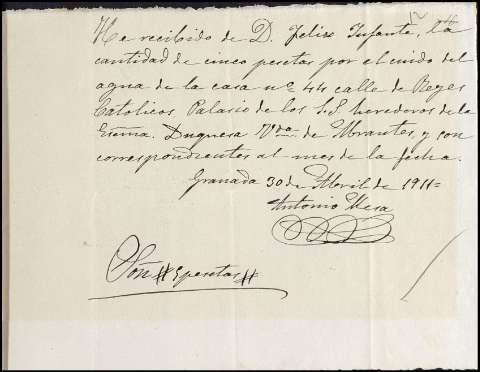 He recibido de D. Felix Infante, la
cantidad de cinco pesetas por el cuido del
agua de la casa nº 44 calle de Reyes
Católicos Palacio de los S.S. herederos de la
Exma. Duquesa Vda. de Abrantes, y son
correspondientes al mes de la fecha.
Granada 30 de Abril de 1911=
Antonio Mesa
Son # 5 pesetas #